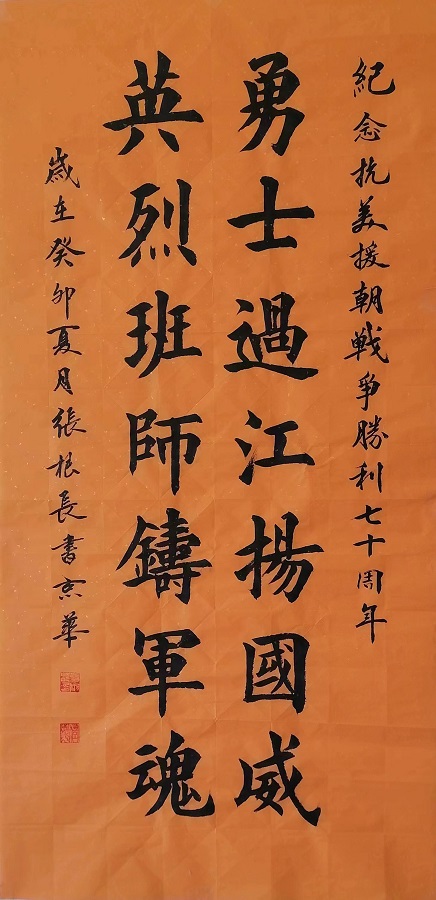 紀念抗美援朝戰爭勝利七十周年
勇士過江揚國威
英烈班師鑄軍魂
歲在癸卯夏月張根長書京華